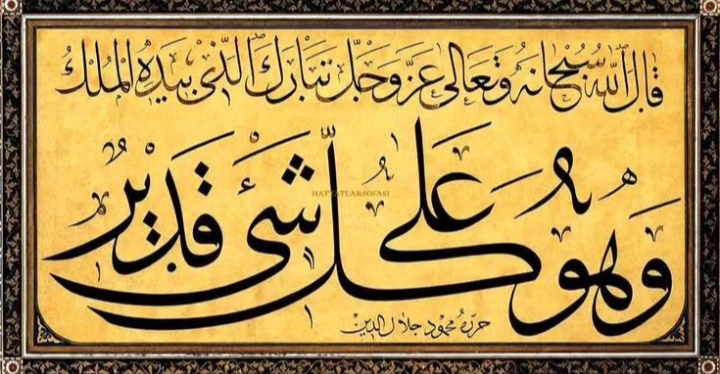 قال الله سبحانه وتعالى عز وجل تبارك الذي بيده الملك
وهو على كل شئ قدير
HATTATLARSOFASI
حرره محمود جلال الدين